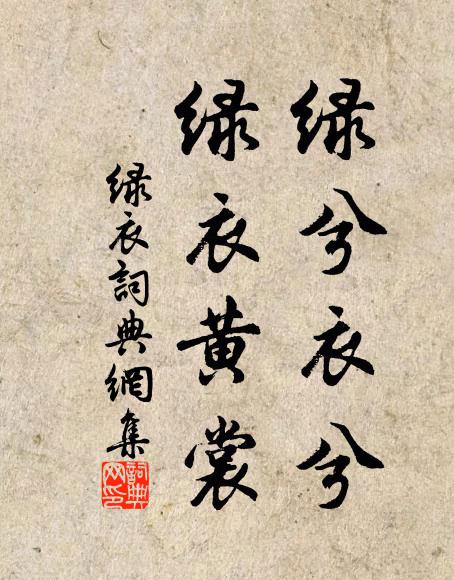 绿兮衣兮
绿衣黄裳
绿衣詞典網集
詞典
网印